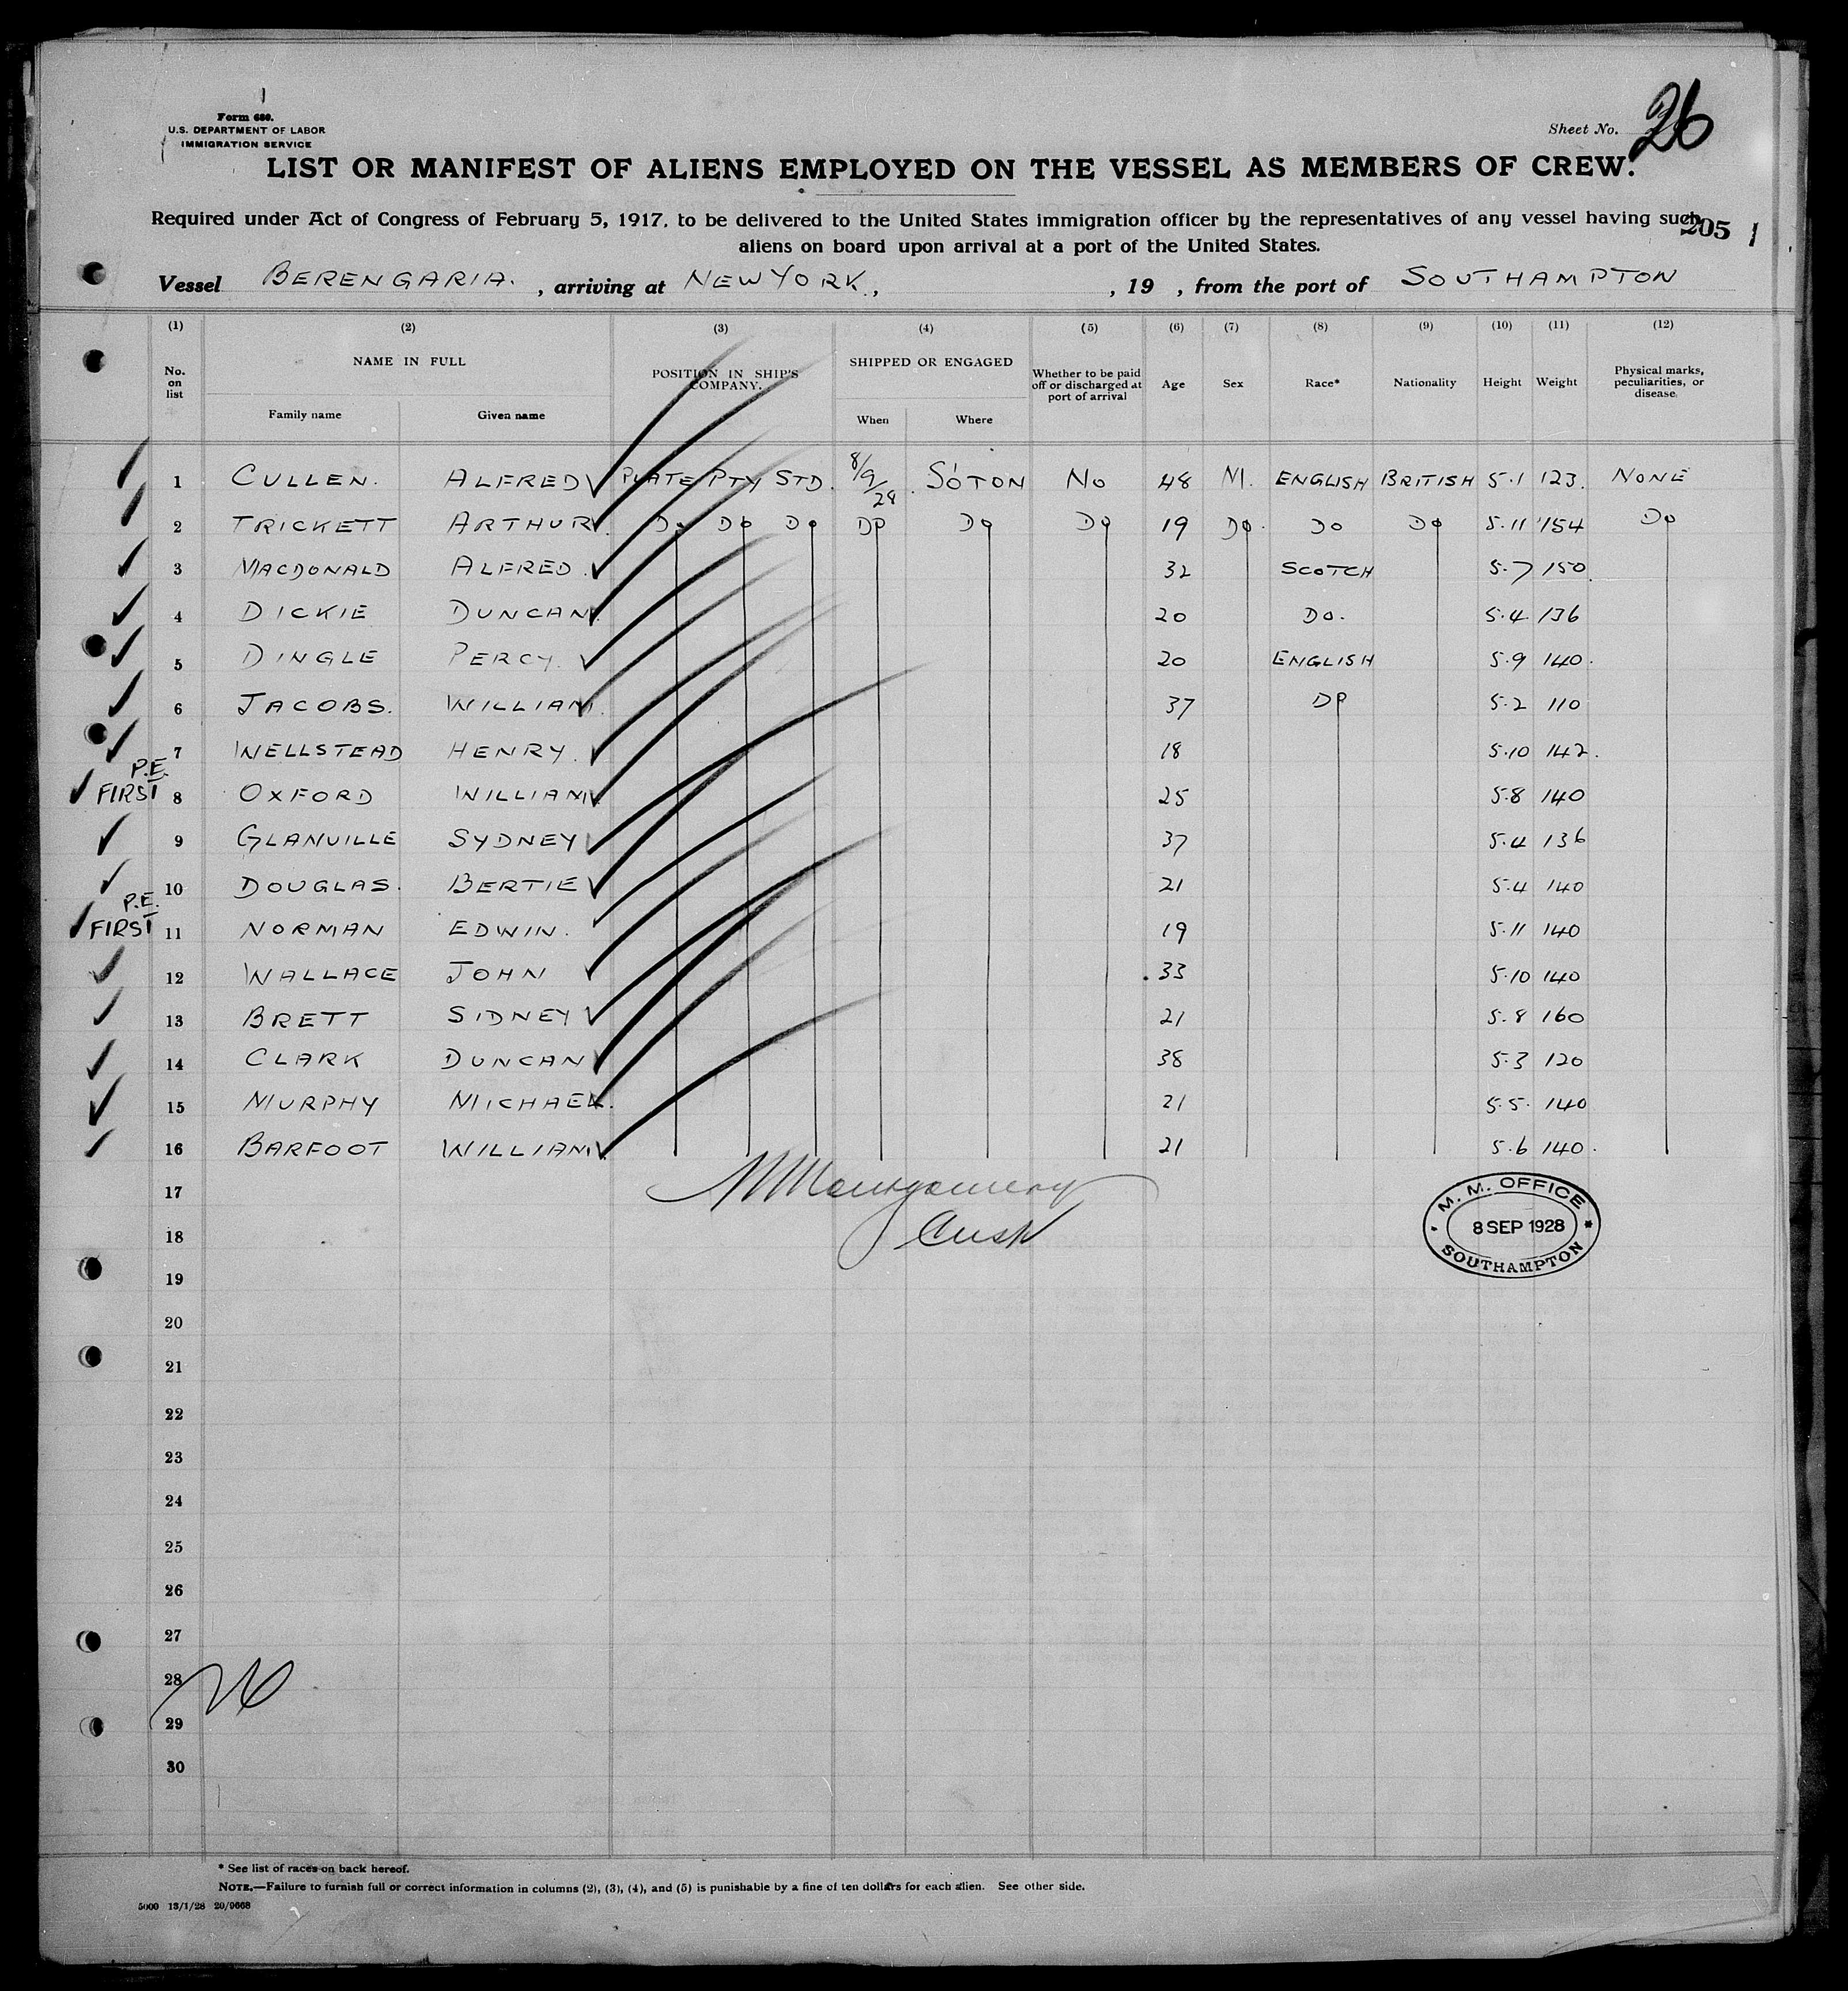 Form 680.
U.S. DEPARTMENT OF LABOR
IMMIGRATION SERVICE
Sheet No. 26
LIST OR MANIFEST OF ALIENS EMPLOYED ON THE VESSEL AS MEMBERS OF CREW.
Required under Act of Congress of February 5, 1917, to be delivered to the United States immigration officer by the representatives of any vessel having such
205
aliens on board upon arrival at a port of the United States.
Vessel BERENGARIA. , arriving at NEW YORK, , 19 , from the port of SOUTHAMPTON
(1) (2) (3) (4) (5) (6) (7) (8) (9) (10) (11) (12)
No. on list NAME IN FULL POSITION IN SHIP'S COMPANY. SHIPPED OR ENGAGED Whether to be paid off or discharged at port of arrival Age Sex Race* Nationality Height Weight Physical marks, peculiarities, or disease.
Family name Given name When Where
1 CULLEN. ALFRED PLATE PTY STD. 8/9/28. S'OTON NO 48 M. ENGLISH BRITISH 5.1 123. NONE
2 TRICKETT ARTHUR. DO DO DO DO DO DO 19 DO. DO DO 5.11 154 DO
3 MACDONALD ALFRED. 32 SCOTCH 5.7 150.
4 DICKIE DUNCAN. 20 DO. 5.4. 136
5 DINGLE PERCY. 20 ENGLISH 5.9 140.
6 JACOBS. WILLIAM. 37 DO 5.2 110
7 WELLSTEAD HENRY. 18 5.10 142.
P.E. FIRST 8 OXFORD WILLIAM. 25 5.8 140
9 GLANVILLE SYDNEY 37 5.4 136
10 DOUGLAS. BERTIE 21 5.4 140
P.E. FIRST 11 NORMAN EDWIN. 19 5.11 140
12 WALLACE JOHN 33 5.10 140
13 BRETT SIDNEY 21 5.8 160
14 CLARK DUNCAN 38 5.3 120
15 MURPHY MICHAEL. 21 5.5. 140
16 BARFOOT WILLIAM. 21 5.6 140.
17 Montgomery
18
M. M. OFFICE
8 SEP 1928
SOUTHAMPTON
19
20
21
22
23
24
25
26
27
28
29
30
* See list of races on back hereof.
NOTE.—Failure to furnish full or correct information in columns (2), (3), (4), and (5) is punishable by a fine of ten dollars for each alien. See other side.
5000 13/1/28 20/9668